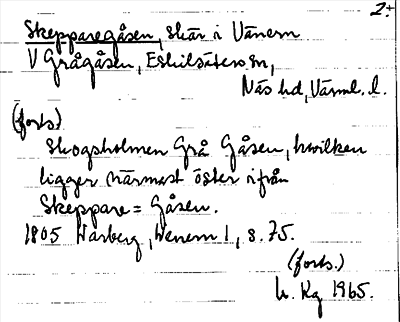 2.
Skepparegåsen, skär i Vänern
V Grågåsen, Eskilsäters sn,
Näs hd, Värml. l.
(forts)
Skogsholmen Grå Gåsen, hwilken
ligger närmast öster ifrån
Skeppare = Gåsen.
1805 Warberg, Wenern 1, s. 75.
(forts.)
Kg 1965.